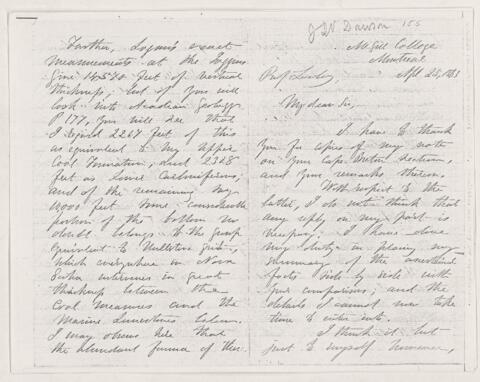 J W Dawson 155
McGill College
Montreal
Sept. 25, 1883
Prof. Lesley
My dear Sir,
I have to thank
you for copies of my note
on your Cape Breton Section,
and your remarks thereon.
With respect to the
latter, I do not think that
any reply on my part is
necessary. I have done
my duty in placing my
summary of the ascertained
facts side by side with
your comparison; and the
details I cannot now take
time to enter into.
I think it but
just to myself however,
Further, Logan's exact
measurements at the Joggins
give 14,570 feet of vertical
thickness; but if you will
look into Acadian Geology
P 177, you will see that
I regard 2267 feet of this
as equivalent to my Upper
Coal Formation, and 2308
feet as lower Carboniferous;
and of the remaining
10,000 feet some considerable
portion of the bottom no
doubt belongs to the group
equivalent to Millstone Grit,
which everywhere in Nova
Scotia intervenes in great
thickness between the
Coal Measures and the
Marine Limestones below.
I may observe here that
the abundant fauna of these